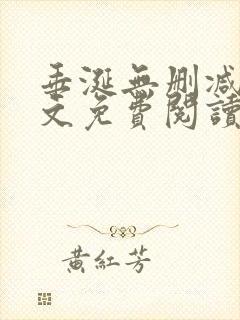 垂涎無刪減
文免費閱讀
黃紅芳